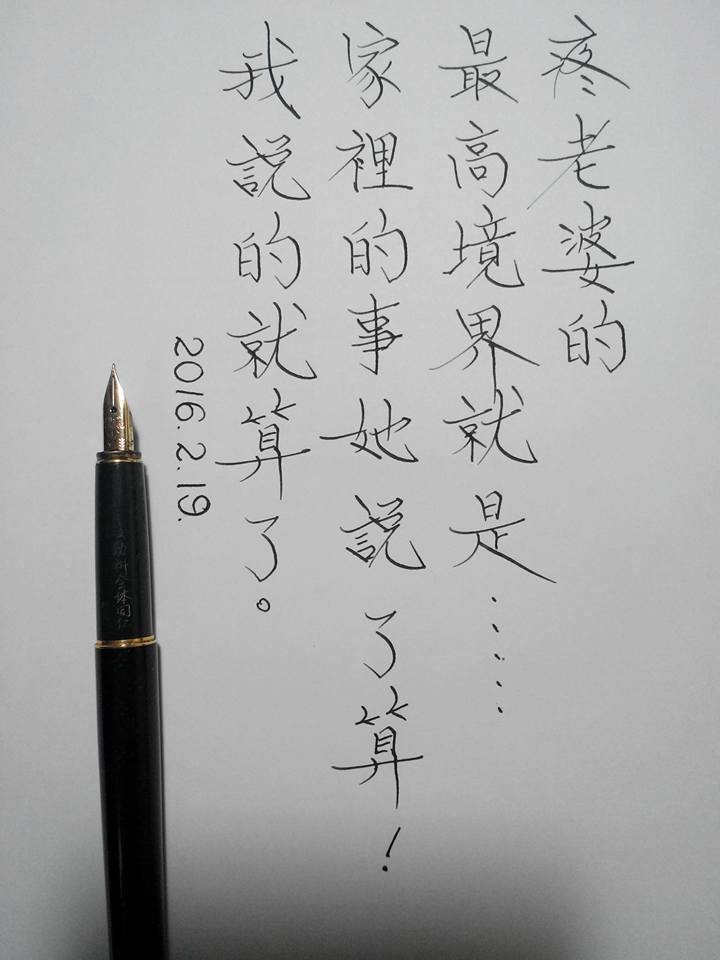 疼老婆的
最高境界就是......
家裡的事她說了算！
我說的就算了。
2016.2.19.